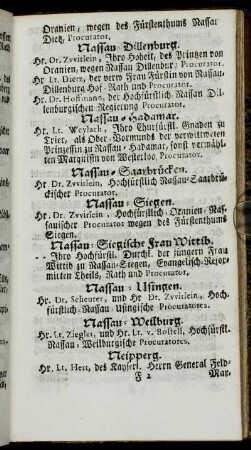 Oranien, wegen des Fürstenthums Nassau
Dietz, Procurator.
Nassau-Dillenburg.
Hr. Dr. Zvvirlein, Ihro Hoheit, des Printzen von
Oranien, wegen Nassau Dillenburg Procurator.
Hr. Lt. Dietz, der verw. Frau Fürstin von Nassau-
Dillenburg Hof-Rath und Procurator.
Hr. Dr. Hoffmann, der Hochfürstlich Nassau Dil-
lenburgischen Regierung Procurator.
Nassau-Hadamar.
Hr. Lt. Weylach, Ihro Churfürstl. Gnaden zu
Trier, als Ober-Vormunds der verwittweten
Prinzeßin zu Nassau-Hadamar, sonst vermähl-
ten Marquisin von Westerloo, Procurator.
Nassau-Saarbrücken.
Hr. Dr. Zvvirlein, Hochfürstlich Nassau-Saarbrü-
ckischer Procurator.
Nassau-Siegen.
Hr. Dr. Zvvirlein, Hochfürstlich-Oranien-Nas-
sauischer Procurator wegen des Fürstenthums
Siegen.
Nassau-Siegische Frau Wittib.
- - Ihro Hochfürstl. Durchl. der jüngern Frau
Wittib zu Nassau-Siegen, Evangelisch-Refor-
mirten Theils, Rath und Procurator.
Nassau-Usingen.
Hr. Dr. Scheurer, und Hr. Dr. Zvvirlein, Hoch-
fürstlich-Nassau-Usingische Procuratores.
Nassau-Weilburg.
Hr. Lt. Ziegler, und Hr. Lt. v. Bostell, Hochfürstl.
Nassau-Weilburgische Procuratores.
Neipperg.
Hr. Lt. Hert, des Kayserl. Herrn General Feld-
F 2 Mar-